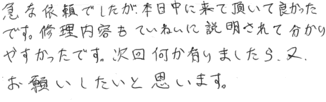 急な依頼でしたが、本日中に来て頂いて良かった
です。修理内容もていねいに説明されて分かり
やすかったです。次回何か有りましたら、又、
お願いしたいと思います。